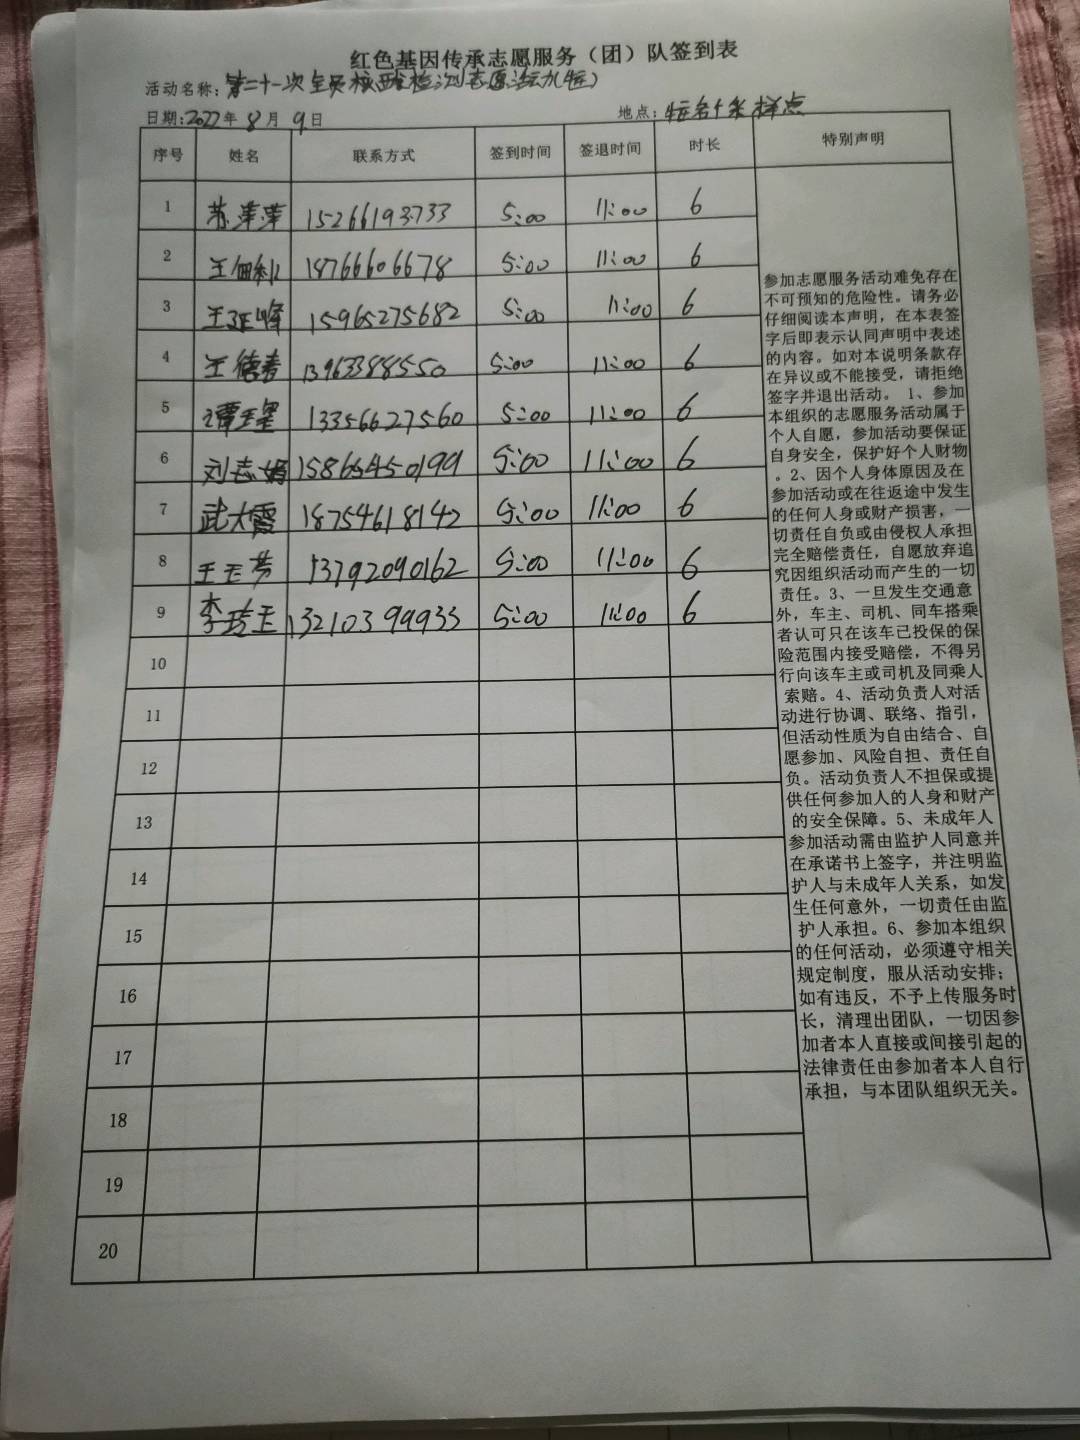 红色基因传承志愿服务（团）队签到表
活动名称：第二十一次全员核酸检测志愿活动
日期：2022年8月9日 地点：采样点
序号 姓名 联系方式 签到时间 签退时间 时长 特别声明
1 苏萍萍 15266193733 5:00 11:00 6
2 王 18766606678 5:00 11:00 6
3 王延峰 15965275682 5:00 11:00 6
4 王德青 13963388550 5:00 11:00 6
5 谭玉星 13356627560 5:00 11:00 6
6 刘志娟 15865450199 5:00 11:00 6
7 武大霞 18754618142 5:00 11:00 6
8 王玉芳 13792090162 5:00 11:00 6
9 李玲玉 13210399933 5:00 11:00 6
10
11
12
13
14
15
16
17
18
19
20
参加志愿服务活动难免存在
不可预知的危险性。请务必
仔细阅读本声明，在本表签
字后即表示认同声明中表述
的内容。如对本说明条款存
在异议或不能接受，请拒绝
签字并退出活动。 1、参加
本组织的志愿服务活动属于
个人自愿，参加活动要保证
自身安全，保护好个人财物
。2、因个人身体原因及在
参加活动或在往返途中发生
的任何人身或财产损害，一
切责任自负或由侵权人承担
完全赔偿责任，自愿放弃追
究因组织活动而产生的一切
责任。3、一旦发生交通意
外，车主、司机、同车搭乘
者认可只在该车已投保的保
险范围内接受赔偿，不得另
行向该车主或司机及同乘人
索赔。4、活动负责人对活
动进行协调、联络、指引，
但活动性质为自由结合、自
愿参加、风险自担、责任自
负。活动负责人不担保或提
供任何参加人的人身和财产
的安全保障。5、未成年人
参加活动需由监护人同意并
在承诺书上签字，并注明监
护人与未成年人关系，如发
生任何意外，一切责任由监
护人承担。6、参加本组织
的任何活动，必须遵守相关
规定制度，服从活动安排；
如有违反，不予上传服务时
长，清理出团队，一切因参
加者本人直接或间接引起的
法律责任由参加者本人自行
承担，与本团队组织无关。